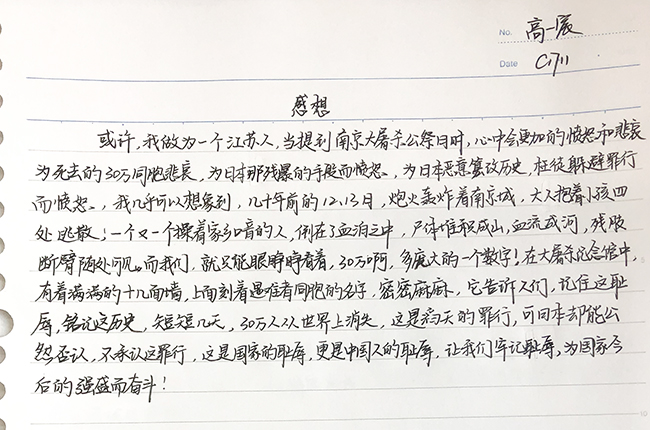 No. 高一辰
Date C1711
感想
或许,我做为一个江苏人,当提到南京大屠杀公祭日时,心中会更加的愤怒和悲哀
为死去的30万同胞悲哀,为日本那残暴的手段而愤怒。,为日本恶意篡改历史,枉徒躲避罪行
而愤怒。,我几乎可以想象到,几十年前的12.13日,炮火轰炸着南京城,大人抱着小孩四
处逃散;一个又一个操着家乡口音的人,倒在了血泊之中,尸体堆积成山,血流成河,残肢
断臂随处可见。而我们,就只能眼睁睁看着,30万啊,多庞大的一个数字!在大屠杀纪念馆中,
有着满满的十几面墙,上面刻着遇难者同胞的名字,密密麻麻,它告诉人们,记住这耻
辱,铭记这历史,短短几天,30万人从世界上消失,这是滔天的罪行,可日本却能公
然否认,不承认这罪行,这是国家的耻辱,更是中国人的耻辱,让我们牢记耻辱,为国家今
后的强盛而奋斗!